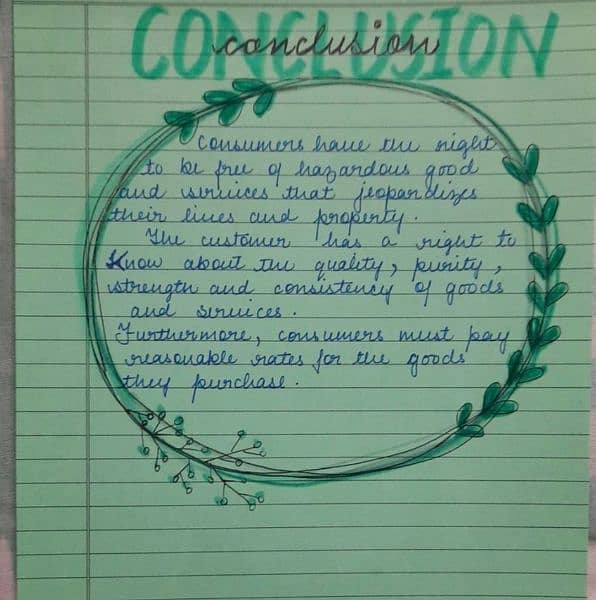 CONCLUSION
conclusion
Consumers have the right
to be free of hazardous good
and services that jeopardizes
their lives and property.
The customer has a right to
know about the quality, purity,
strength and consistency of goods
and services.
Furthermore, consumers must pay
reasonable rates for the goods
they purchase.